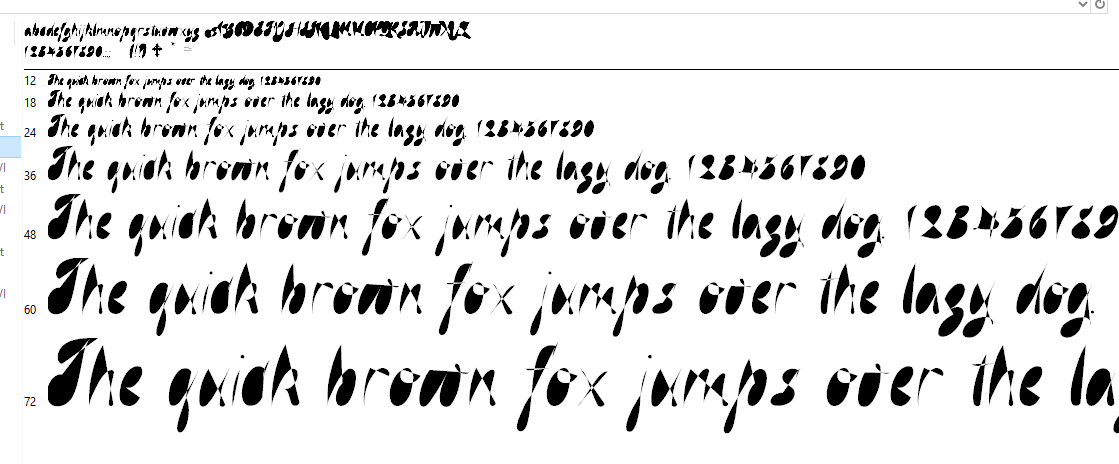 abcdefghijklmnopqrstuvwxyz ABCDEFGHIJKLMNOPQRSTUVWXYZ
1234567890.:,;
12 The quick brown fox jumps over the lazy dog. 1234567890
18 The quick brown fox jumps over the lazy dog. 1234567890
24 The quick brown fox jumps over the lazy dog. 1234567890
36 The quick brown fox jumps over the lazy dog. 1234567890
48 The quick brown fox jumps over the lazy dog. 123456789
60 The quick brown fox jumps over the lazy dog.
72 The quick brown fox jumps over the la